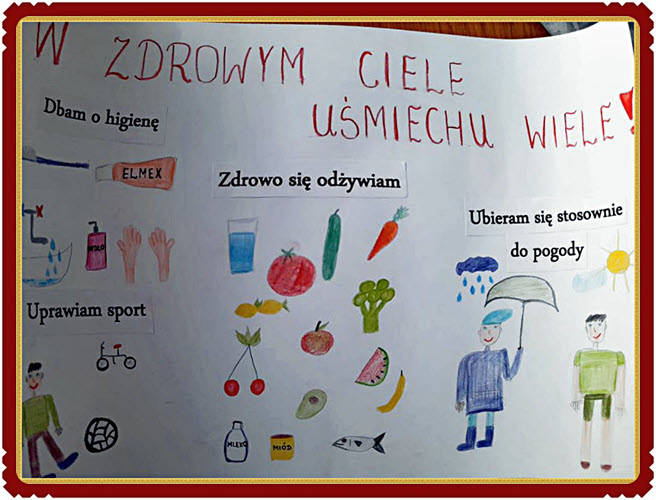 W ZDROWYM CIELE
UŚMIECHU WIELE!
Dbam o higienę
ELMEX
MYDŁO
Zdrowo się odżywiam
Ubieram się stosownie
do pogody
Uprawiam sport
MLEKO
MIÓD